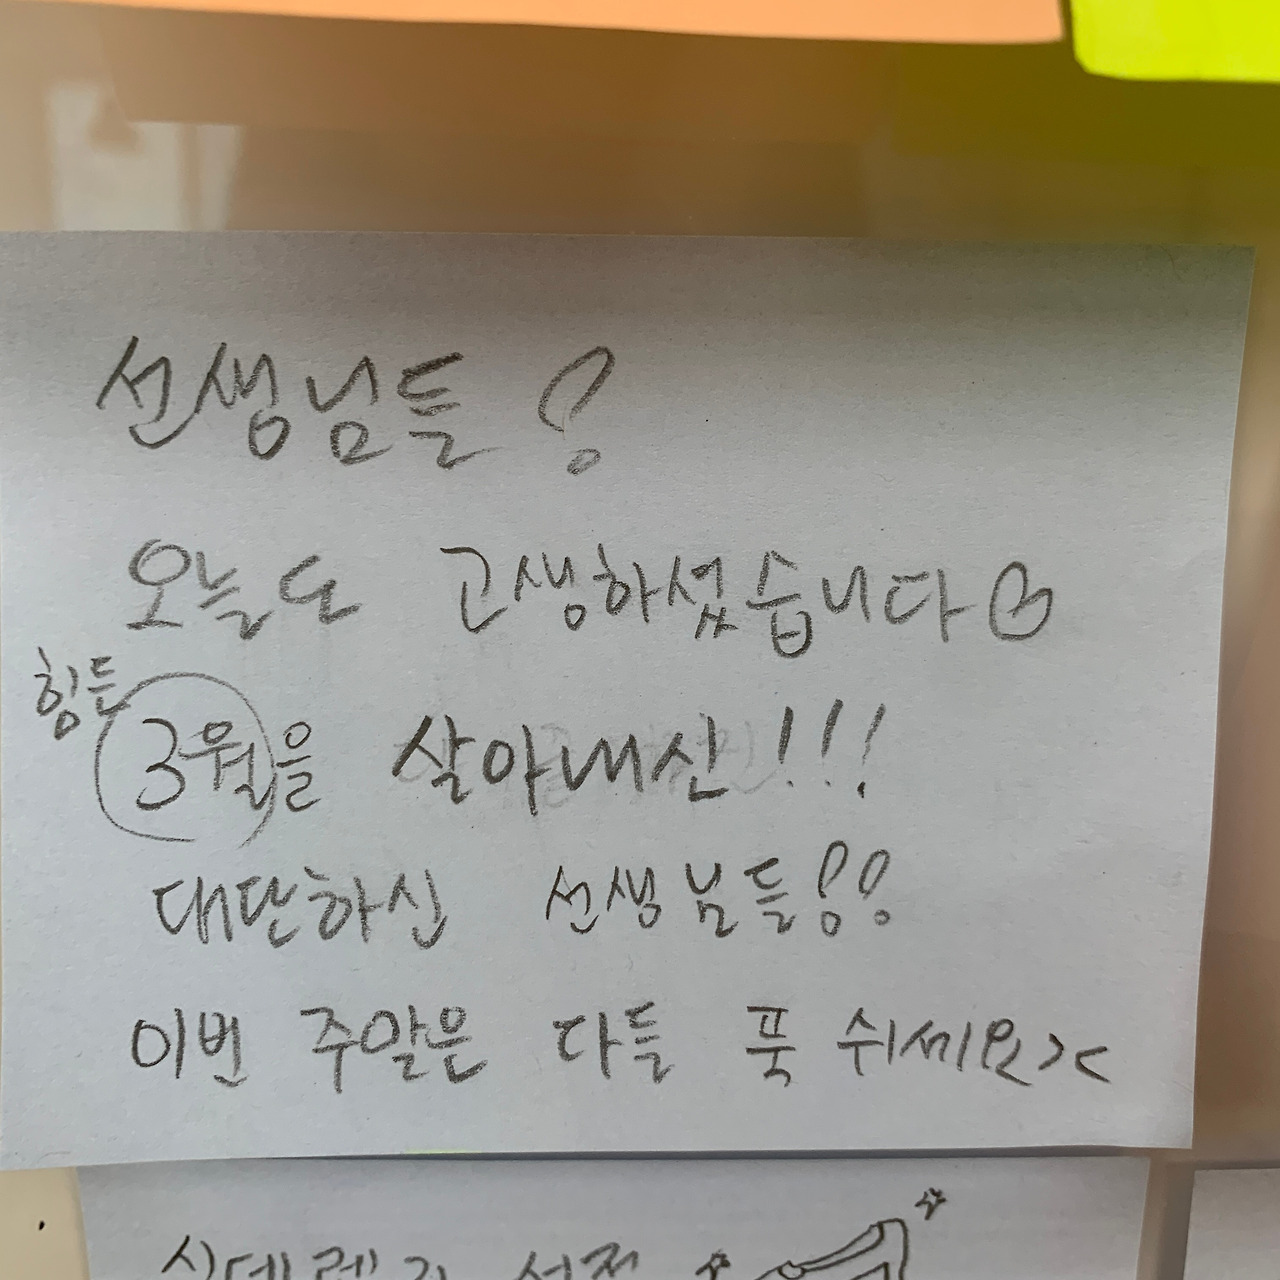 선생님들!
오늘도 고생하셨습니다♡
힘든
3월을 살아내신!!!
대단하신 선생님들!!
이번 주말은 다들 푹 쉬세요><
신데렐라